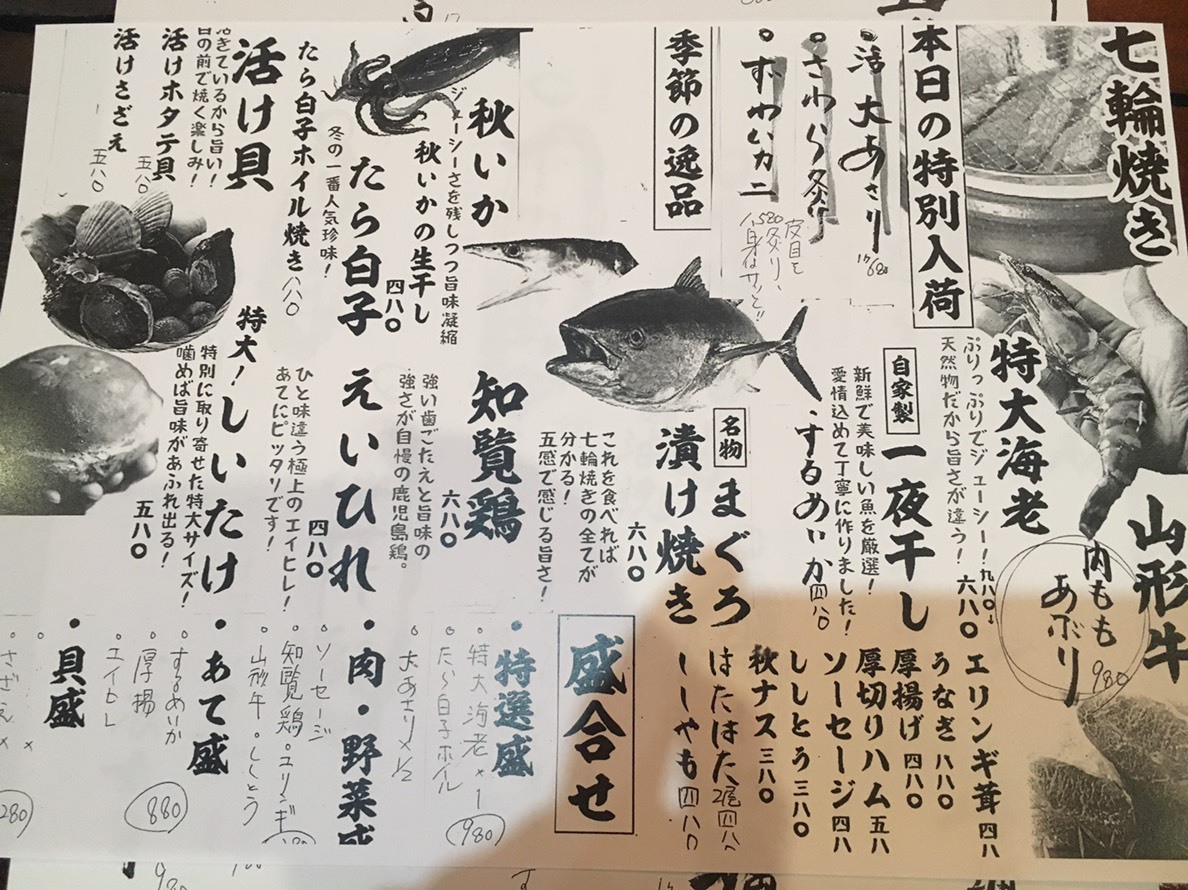 七輪焼き
山形牛
内もも
あぶり
980
特大海老
ぷりっぷりでジューシー!
天然物だから旨さが違う!
九八〇
六八〇
エリンギ茸 四八
うなぎ 八八〇
厚揚げ 四八〇
厚切りハム 五八
ソーセージ 四八
ししとう 三八〇
秋ナス 三八〇
本日の特別入荷
活大あさり
さわら炙り
皮目を
炙り、
身はサッと!!
ずわいカニ
1,580
自家製
一夜干し
新鮮で美味しい魚を厳選!
愛情込めて丁寧に作りました!
するめいか 四八〇
はたはた 2尾 四八〇
ししゃも 四八〇
季節の逸品
名物
まぐろ
漬け焼き
六八〇
これを食べれば
七輪焼きの全てが
分かる!
五感で感じる旨さ!
秋いか
ジューシーさを残しつつ旨味凝縮
秋いかの生干し
四八〇
知覧鶏
六八〇
強い歯ごたえと旨味の
強さが自慢の鹿児島鶏。
たら白子
冬の一番人気珍味!
たら白子ホイル焼き 八八〇
えいひれ
四八〇
ひと味違う極上のエイヒレ!
あてにピッタリです!
活け貝
活きているから旨い!
目の前で焼く楽しみ!
活けホタテ貝
五八〇
活けさざえ
五八〇
特大!しいたけ
特別に取り寄せた特大サイズ!
噛めば旨味があふれ出る!
五八〇
盛合せ
・特選盛
。特大海老×1
。たら白子ホイル
。大あさり×1/2
980
・肉・野菜盛
。ソーセージ
。知覧鶏 。エリンギ
。山形牛 。ししとう
・あて盛
。するめいか
。厚揚
。エイヒレ
880
・貝盛
。さざえ×
280